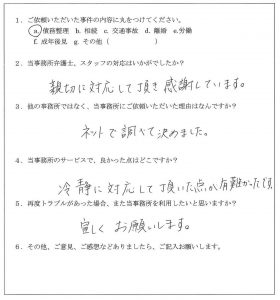 1. ご依頼いただいた事件の内容に丸をつけてください。
a. 債務整理 b. 相続 c. 交通事故 d. 離婚 e.労働
f. 成年後見 g. その他（ ）
2. 当事務所弁護士、スタッフの対応はいかがでしたか？
親切に対応して頂き感謝しています。
3. 他の事務所ではなく、当事務所にご依頼いただいた理由はなんですか？
ネットで調べて決めました。
4. 当事務所のサービスで、良かった点はどこですか？
冷静に対応して頂いた点が有難かったです
5. 再度トラブルがあった場合、また当事務所を利用したいと思いますか？
宜しくお願いします。
6. その他、ご意見、ご感想などありましたら、ご記入お願いします。